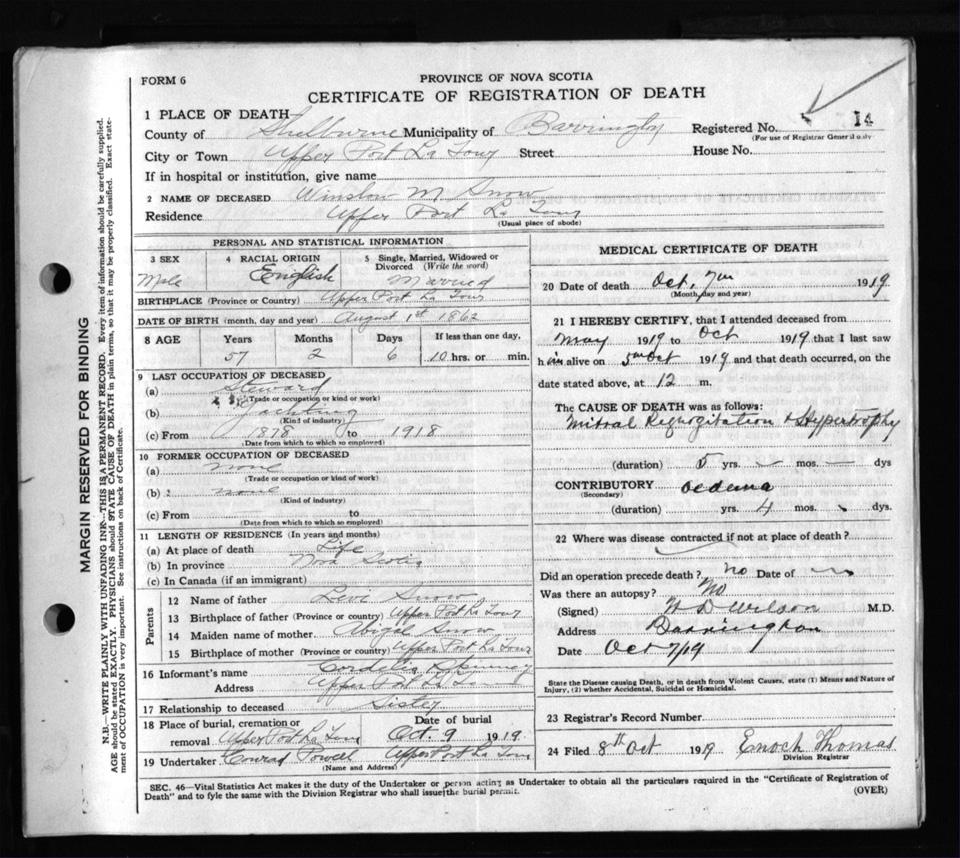 FORM 6
PROVINCE OF NOVA SCOTIA
CERTIFICATE OF REGISTRATION OF DEATH
1 PLACE OF DEATH
County of Shelburne Municipality of Barrington Registered No. 14
(For use of Registrar General only
City or Town Upper Port La Tour Street House No.
If in hospital or institution, give name
2 NAME OF DECEASED Winslow M. Snow
Residence Upper Port La Tour
(Usual place of abode)
PERSONAL AND STATISTICAL INFORMATION
3 SEX 4 RACIAL ORIGIN 5 Single, Married, Widowed or Divorced (Write the word)
Male English Married
BIRTHPLACE (Province or Country) Upper Port La Tour
DATE OF BIRTH (month, day and year) August 1st 1862
8 AGE Years Months Days If less than one day,
57 2 6 10 hrs. or min.
9 LAST OCCUPATION OF DECEASED
(a) Steward
(Trade or occupation or kind or work)
(b) Yachting
(Kind of industry)
(c) From 1878 to 1918
(Date from which to which so employed)
10 FORMER OCCUPATION OF DECEASED
(a) none
(Trade or occupation or kind of work)
(b) none
(Kind of industry)
(c) From to
(Date from which to which so employed)
11 LENGTH OF RESIDENCE (In years and months)
(a) At place of death Life
(b) In province Nova Scotia
(c) In Canada (if an immigrant)
Parents
12 Name of father Levi Snow
13 Birthplace of father (Province or country) Upper Port La Tour
14 Maiden name of mother Abigil Snow
15 Birthplace of mother (Province or country) Upper Port La Tour
16 Informant's name Cordelia Skinney
Address Upper Port La
17 Relationship to deceased Sister
18 Place of burial, cremation or Date of burial
removal Upper Port La Tour Oct. 9 1919.
19 Undertaker Conrad Powell Upper Port La Tour
(Name and Address)
MEDICAL CERTIFICATE OF DEATH
20 Date of death Oct. 7th 1919
(Month, day and year)
21 I HEREBY CERTIFY, that I attended deceased from
May 1919 to Oct 1919 that I last saw
him alive on 5th Oct 1919 and that death occurred, on the
date stated above, at 12 m.
The CAUSE OF DEATH was as follows:
Mitral Regurgitation + Hypertrophy
(duration) 5 yrs. mos. dys
CONTRIBUTORY oedema
(Secondary)
(duration) yrs. 4 mos. dys.
22 Where was disease contracted if not at place of death?
Did an operation precede death? no Date of
Was there an autopsy? No
(Signed) H D Wilson M.D.
Address Barrington
Date Oct 7/19
State the Disease causing Death, or in death from Violent Causes, state (1) Means and Nature of
Injury, (2) whether Accidental, Suicidal or Homicidal.
23 Registrar's Record Number
24 Filed 8th Oct 1919 Enoch Thomas
Division Registrar
SEC. 46—Vital Statistics Act makes it the duty of the Undertaker or person acting as Undertaker to obtain all the particulars required in the "Certificate of Registration of
Death" and to fyle the same with the Division Registrar who shall issue the burial permit. (OVER)
MARGIN RESERVED FOR BINDING
N.B.—WRITE PLAINLY WITH UNFADING INK—THIS IS A PERMANENT RECORD. Every item of information should be carefully supplied.
AGE should be stated EXACTLY. PHYSICIANS should STATE CAUSE OF DEATH in plain terms, so that it may be properly classified. Exact state-
ment of OCCUPATION is very important. See instructions on back of Certificate.